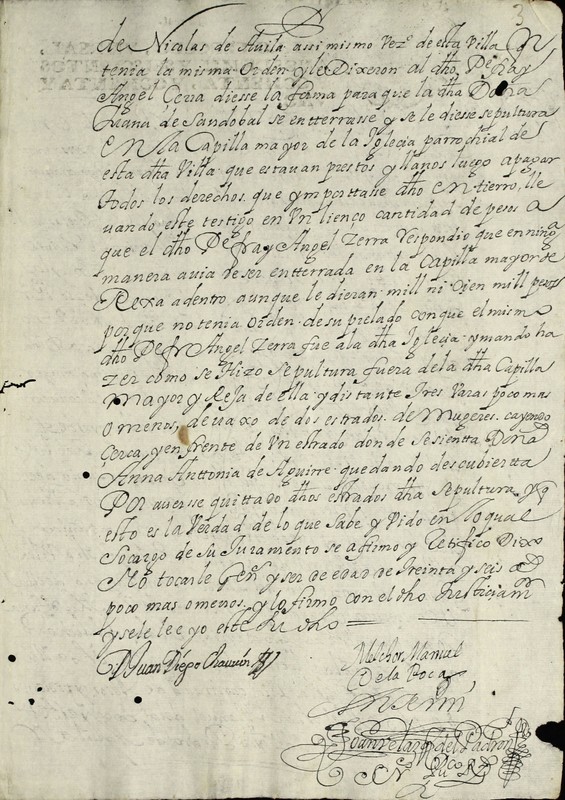 3
de Nicolas de Auila assi mismo Vezº de esta Villa q
tenia la misma orden y le Dixeron al dho Pe fray
Angel Cerra diesse la forma para que la dha Doña
Juana de Sandobal se entterrasse y se le diesse sepultura
en la Capilla mayor de la Iglecia parrochial de
esta dha Villa que estauan prestos y llanos luego apagar
todos los derechos que ymporttase dho entierro, lle
uando este testigo en Un lienço cantidad de pesos a
que el dho Pe fray Angel Zerra Respondio que en ningª
manera auia de ser entterrada en la Capilla mayor de
Rexa adentro aunque le dieran mill ni cien mill pesos
porque no tenia orden de su prelado con que el mismo
dho Pe fr Angel Zerra fue ala dha Iglecia y mando ha
zer como se Hizo sepultura fuera dela dha Capilla
mayor y Reja de ella y distante tres Varas poco mas
o menos, devaxo de dos estrados de Mugeres cayendo
cerca, y en frente de Un estrado donde se sientta Doña
Anna Anttonia de Aguirre quedando descubiertta
por auerse quittado dhos estrados dha sepultura y q
esto es la Verdad de lo que sabe y Vido en lo qual
so cargo de su Juramento se afirmo y Retifico Dixo
No tocarle Genˢ y ser de edad de treinta y seis aº
poco mas o menos, y lo firmo con el dho
y se le leyo este su dho
Juan Diego
Melchor Manuel
de la Roca
Ante mi
Joan Velazqˢ del Padron
SNº Puº Rˡ